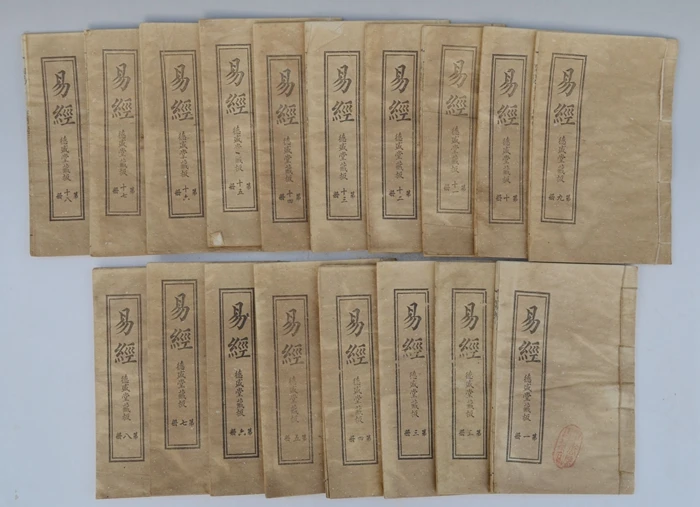 易經
德成堂藏板
第十八冊
易經
德成堂藏板
第十七冊
易經
德成堂藏板
第十六冊
易經
德成堂藏板
第十五冊
易經
德成堂藏板
第十四冊
易經
德成堂藏板
第十三冊
易經
德成堂藏板
第十二冊
易經
德成堂藏板
第十一冊
易經
德成堂藏板
第十冊
易經
德成堂藏板
第九冊
易經
德成堂藏板
第八冊
易經
德成堂藏板
第七冊
易經
德成堂藏板
第六冊
易經
德成堂藏板
第五冊
易經
德成堂藏板
第四冊
易經
德成堂藏板
第三冊
易經
德成堂藏板
第二冊
易經
德成堂藏板
第一冊